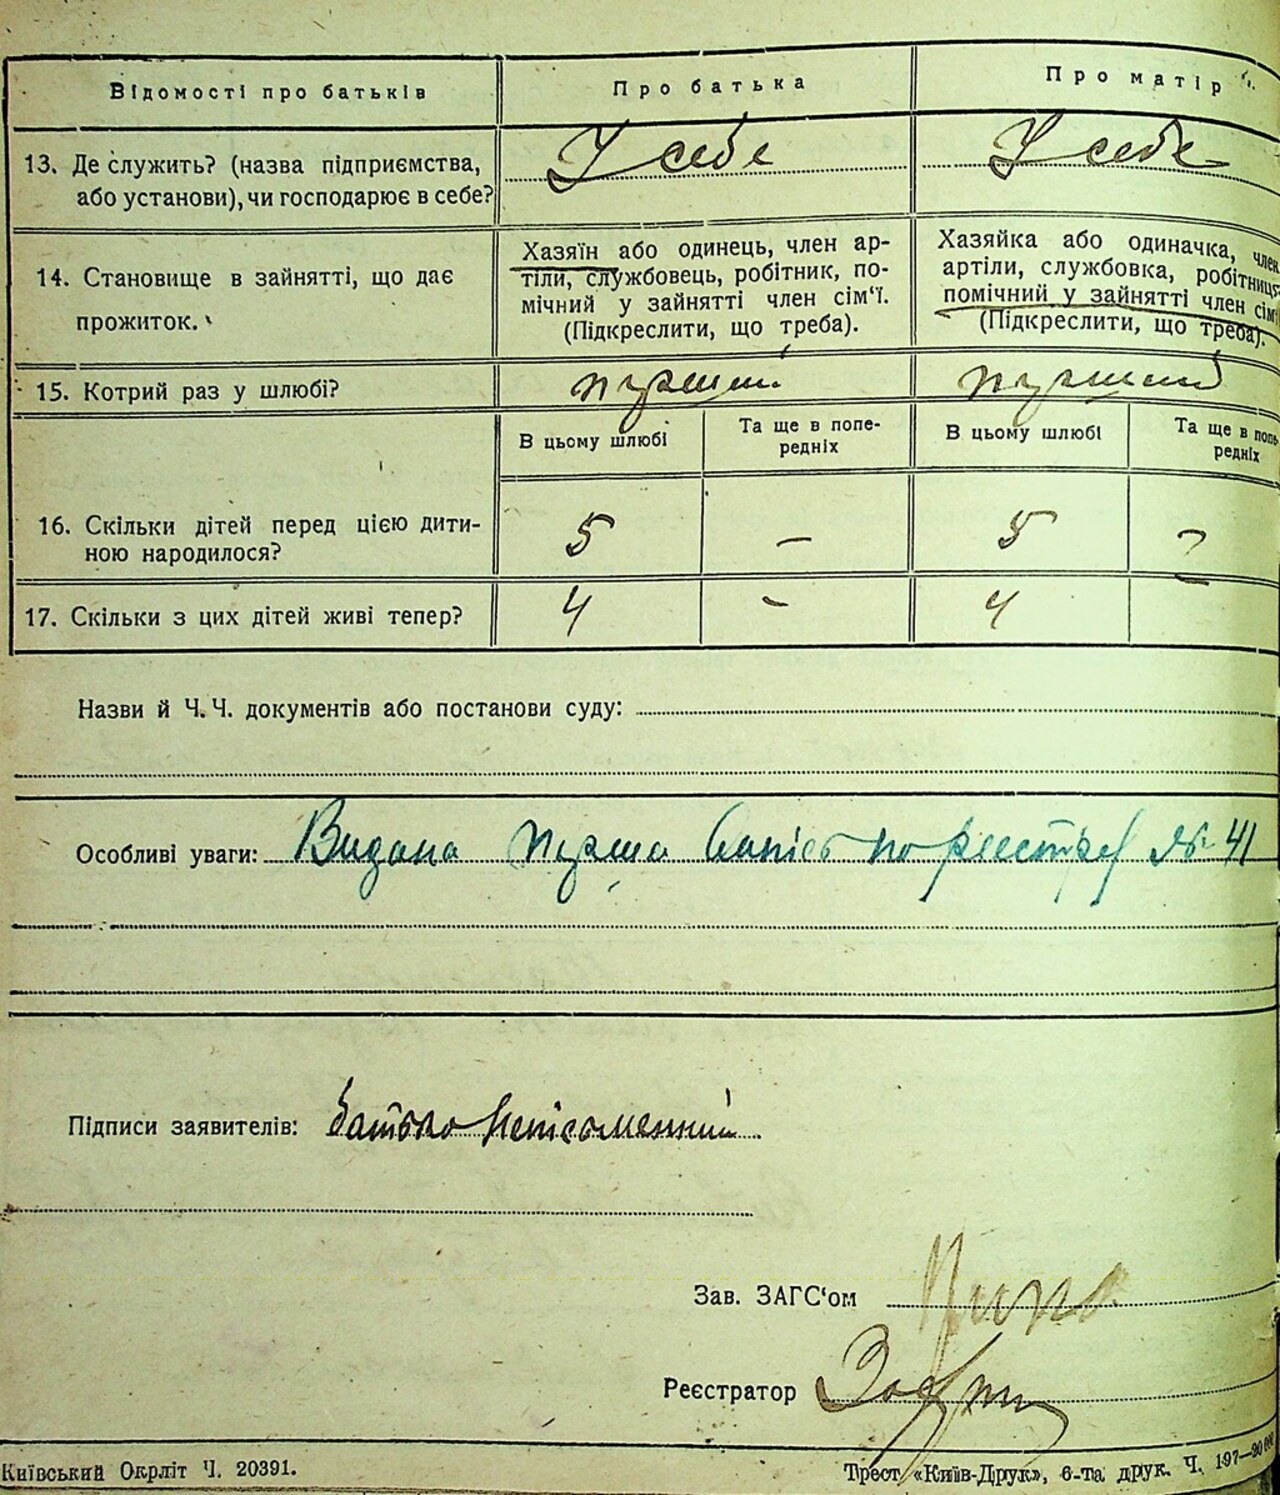 Відомості про батьків
Про батька
Про матір
13. Де служить? (назва підприємства,
або установи), чи господарює в себе?
У себе
У себе
14. Становище в зайнятті, що дає
прожиток.
Хазяїн або одинець, член ар-
тіли, службовець, робітник, по-
мічний у зайнятті член сім‘ї.
(Підкреслити, що треба).
Хазяйка або одиначка, член
артіли, службовка, робітниця
помічний у зайнятті член сім
(Підкреслити, що треба).
15. Котрий раз у шлюбі?
перший
перший
В цьому шлюбі
Та ще в попе-
редніх
В цьому шлюбі
Та ще в попе
редніх
16. Скільки дітей перед цією дити-
ною народилося?
5
—
5
—
17. Скільки з цих дітей живі тепер?
4
-
4
Назви й Ч. Ч. документів або постанови суду:
Особливі уваги: Видана перша по реєстру № 41
Підписи заявителів: батько неписьменний
Зав. ЗАГС‘ом
Реєстратор
Київський Окрліт Ч. 20391.
Трест «Київ-Друк», 6-та друк. Ч. 197—